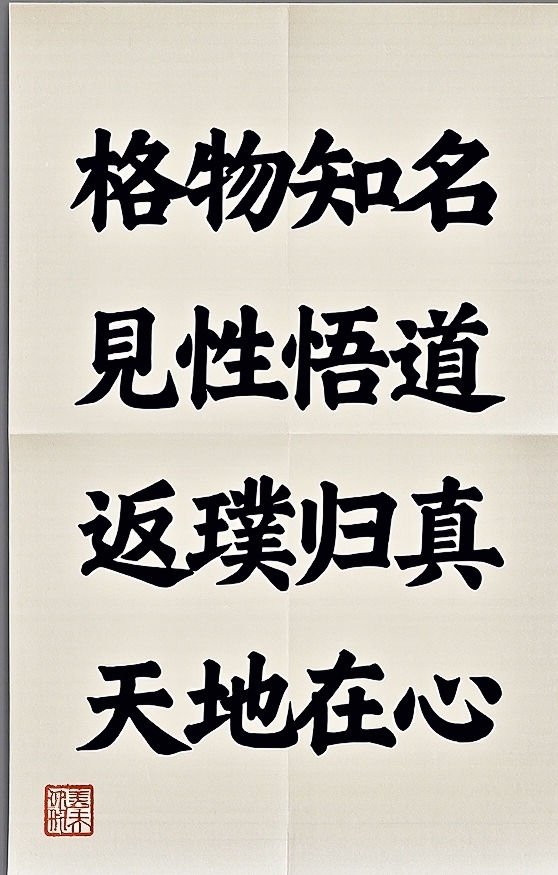 格物知名
見性悟道
返璞归真
天地在心